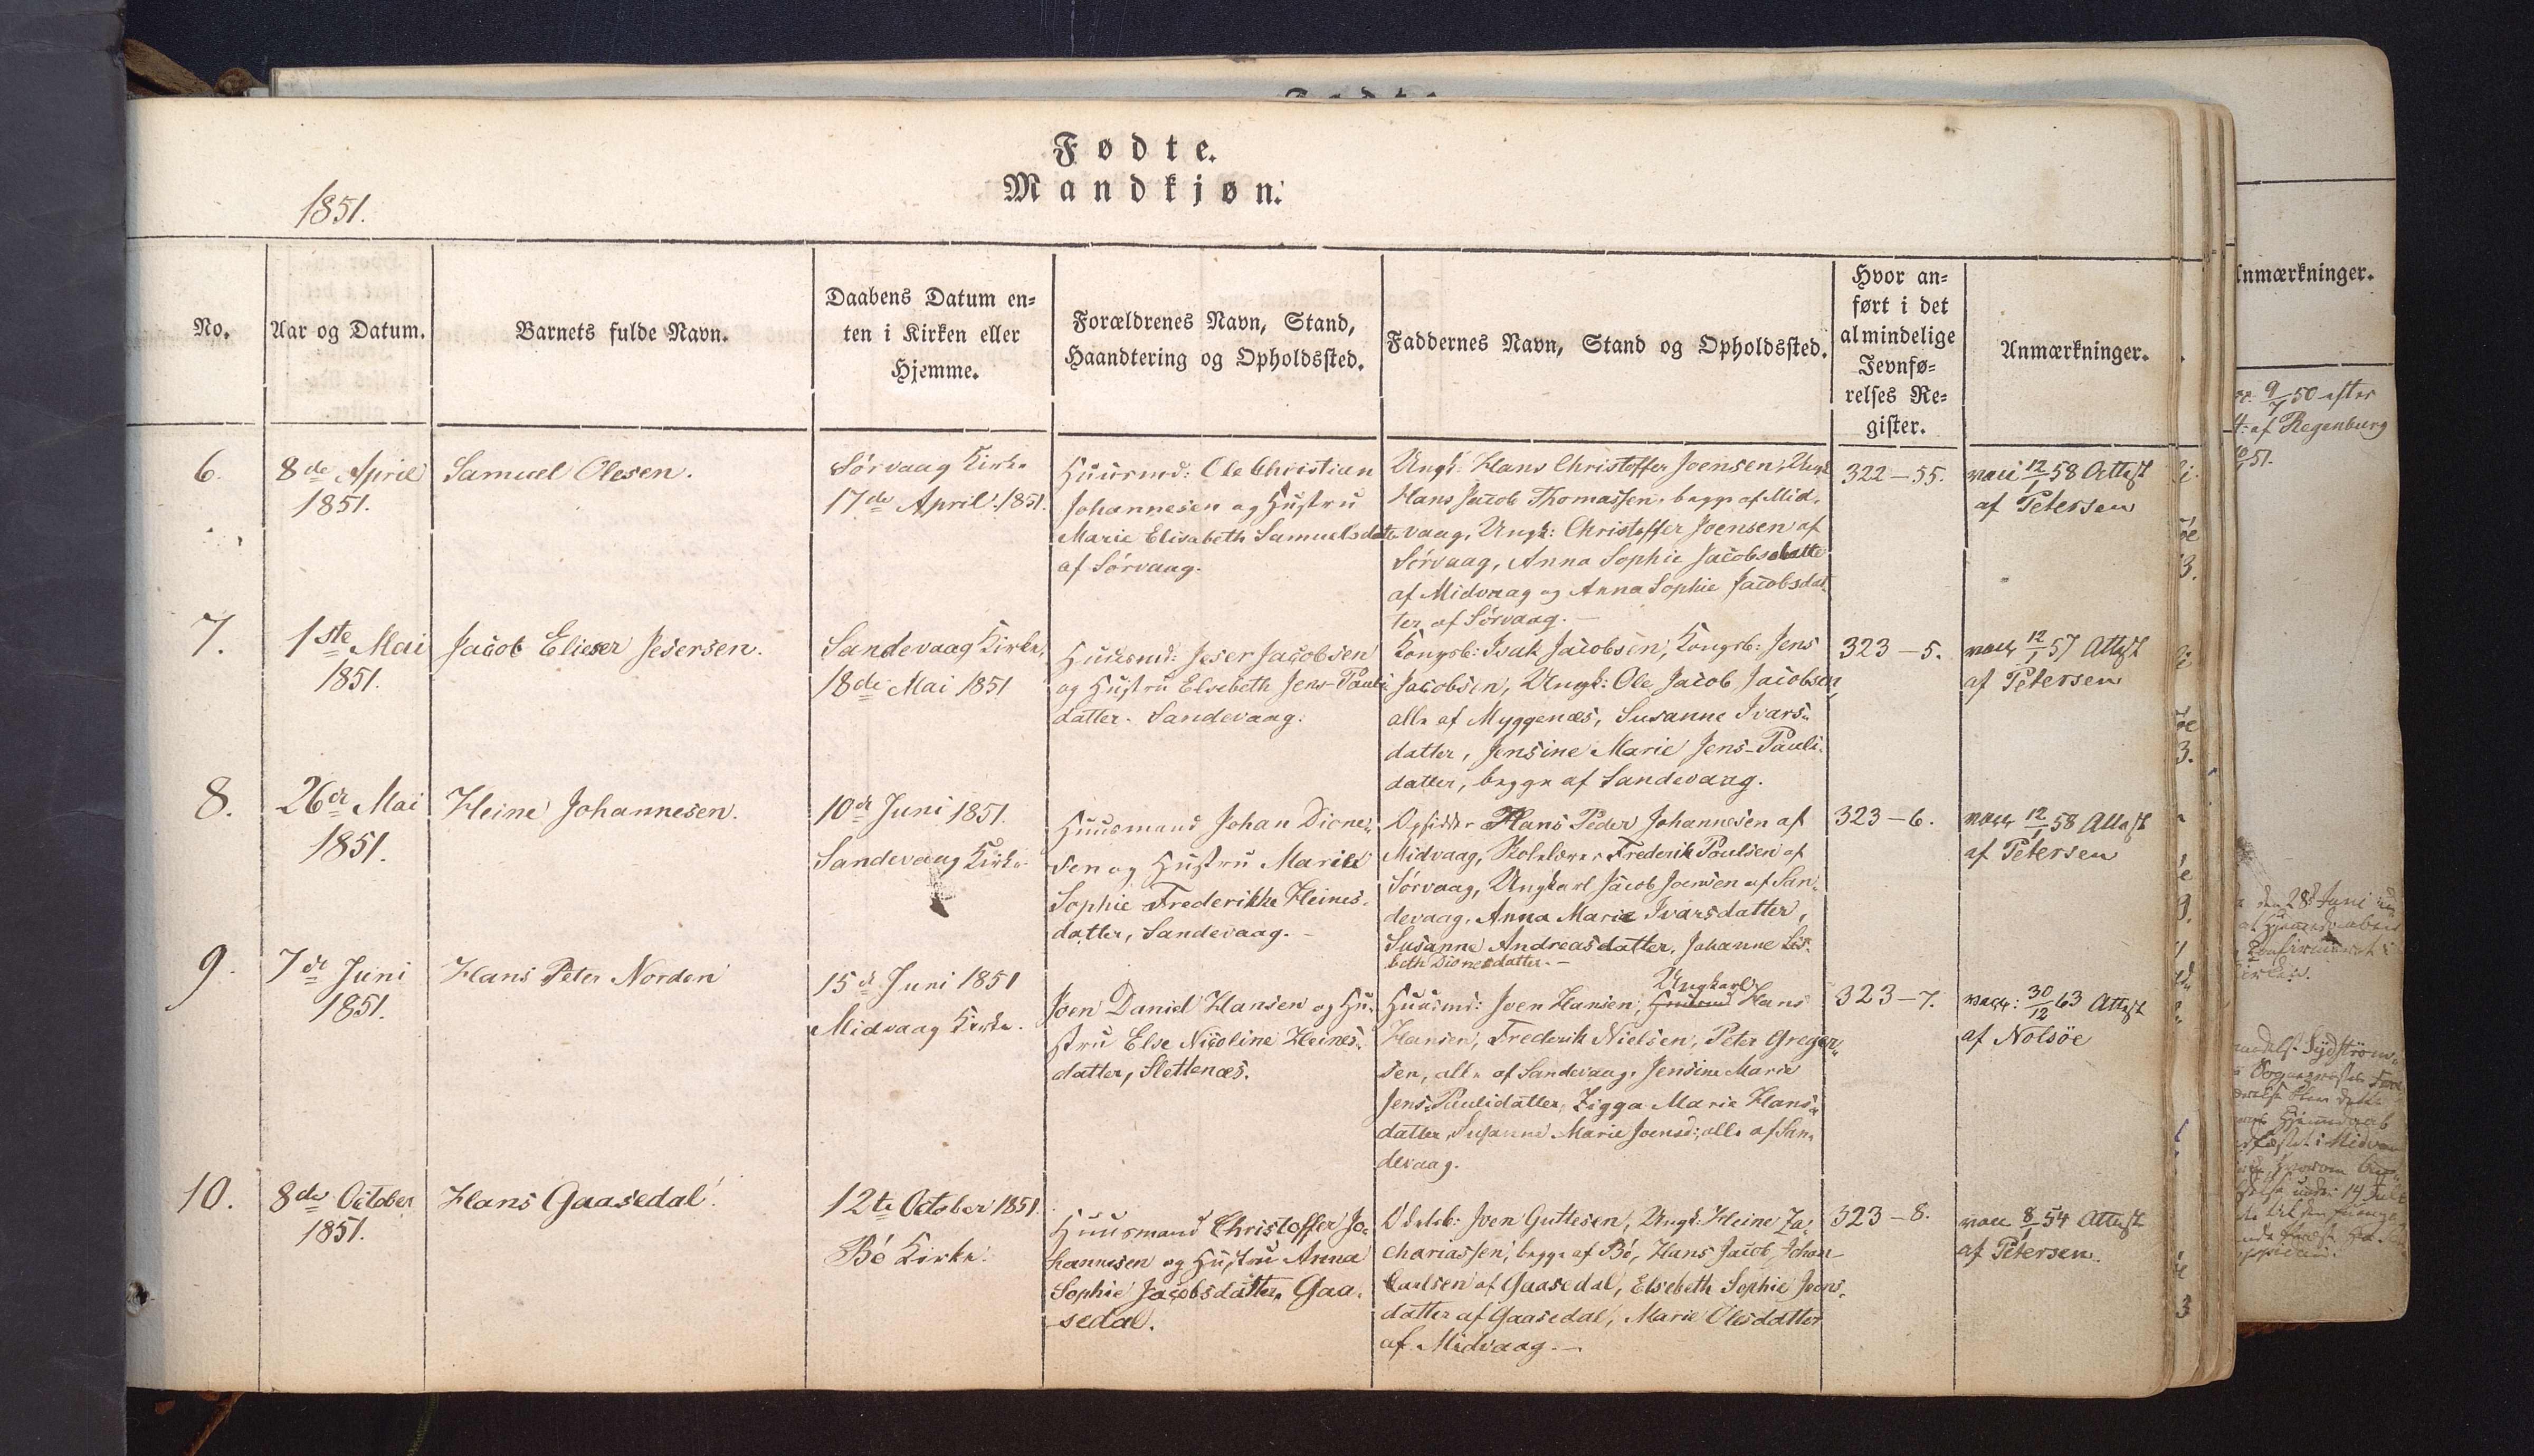 Fødte.
Mandkjøn.
1851.
No.
Aar og Datum.
Barnets fulde Navn.
Daabens Datum en=
ten i Kirken eller
Hjemme.
Forældrenes Navn, Stand,
Haandtering og Opholdssted.
Faddernes Navn, Stand og Opholdssted.
Hvor an=
ført i det
almindelige
Jevnfø=
relses Re=
gister.
Anmærkninger.
6.
8de April
1851.
Samuel Olesen.
Sórvaag Kirke
17de April 1851.
Huusmd: Ole Christian
Johannesen og Hustru
Marie Elisabeth Samuelsdatte
af Sórvaag.
Ungk: Hans Christoffer Joensen, Ungk
Hans Jacob Thomassen, begge af Mid-
vaag, Ungk: Christoffer Joensen af
Sórvaag, Anna Sophie Jacobsdatte
af Midvaag og Anna Sophie Jacobsdat
ter af Sórvaag. —
322—55.
vacc 12/1 58 Attest
af Petersen
7.
1ste Mai
1851.
Jacob Elieser Jesersen.
Sandevaag Kirke,
18de Mai 1851
Huusmd: Jeser Jacobsen
og Hustru Elsebeth Jens-Pauli
datter. Sandevaag.
Kongsb: Isak Jacobsen, Kongsb: Jens
Jacobsen, Ungk: Ole Jacob Jacobsen
alle af Myggenæs, Susanne Ivars-
datter, Jensine Marie Jens-Pauli-
datter, begge af Sandevaag.
323—5.
vacc 12/1 57 Attest
af Petersen
8.
26de Mai
1851.
Heine Johannesen.
10de Juni 1851.
Sandevaag Kirke
Huusmand Johan Dione-
sen og Hustru Marie
Sophie Frederikke Heines-
datter, Sandevaag. —
Opsidder Hans Peder Johannesen af
Midvaag, Skolelærer Frederik Poulsen af
Sórvaag, Ungkarl Jacob Joensen af San-
devaag, Anna Marie Ivarsdatter,
Susanne Andreasdatter, Johanne Lis-
beth Dionesdatter. —
323—6.
vacc 12/1 58 Attest
af Petersen
9.
7de Juni
1851.
Hans Peter Norden
15d Juni 1851
Midvaag Kirke.
Joen Daniel Hansen og Hu-
stru Else Nicoline Heines-
datter, Slettenæs.
Ungkarl
Huusmd: Joen Hansen, Huusmd Hans
Hansen, Frederik Nielsen, Peter Greger-
sen, alle af Sandevaag, Jensine Marie
Jens-Paulidatter, Zigga Marie Hans-
datter, Susanne Marie Joensd:, alle af San-
devaag.
323—7.
vacc: 30/12 63 Attest
af Nolsöe
10.
8de October
1851.
Hans Gaasedal.
12te October 1851.
Bó Kirke.
Huusmand Christoffer Jo-
hannesen og Hustru Anna
Sophie Jacobsdatter, Gaa-
sedal.
Odelsb: Joen Guttesen, Ungk: Heine Za-
chariassen, begge af Bó, Hans Jacob Johan-
Carlsen af Gaasedal, Elsebeth Sophie Joens-
datter af Gaasedal, Marie Olesdatter
af Midvaag. —
323—8.
vacc 8/1 54 Attest
af Petersen.
Anmærkninger.
9/7 50 efter
af Regenburg
51.
den 28d Juni